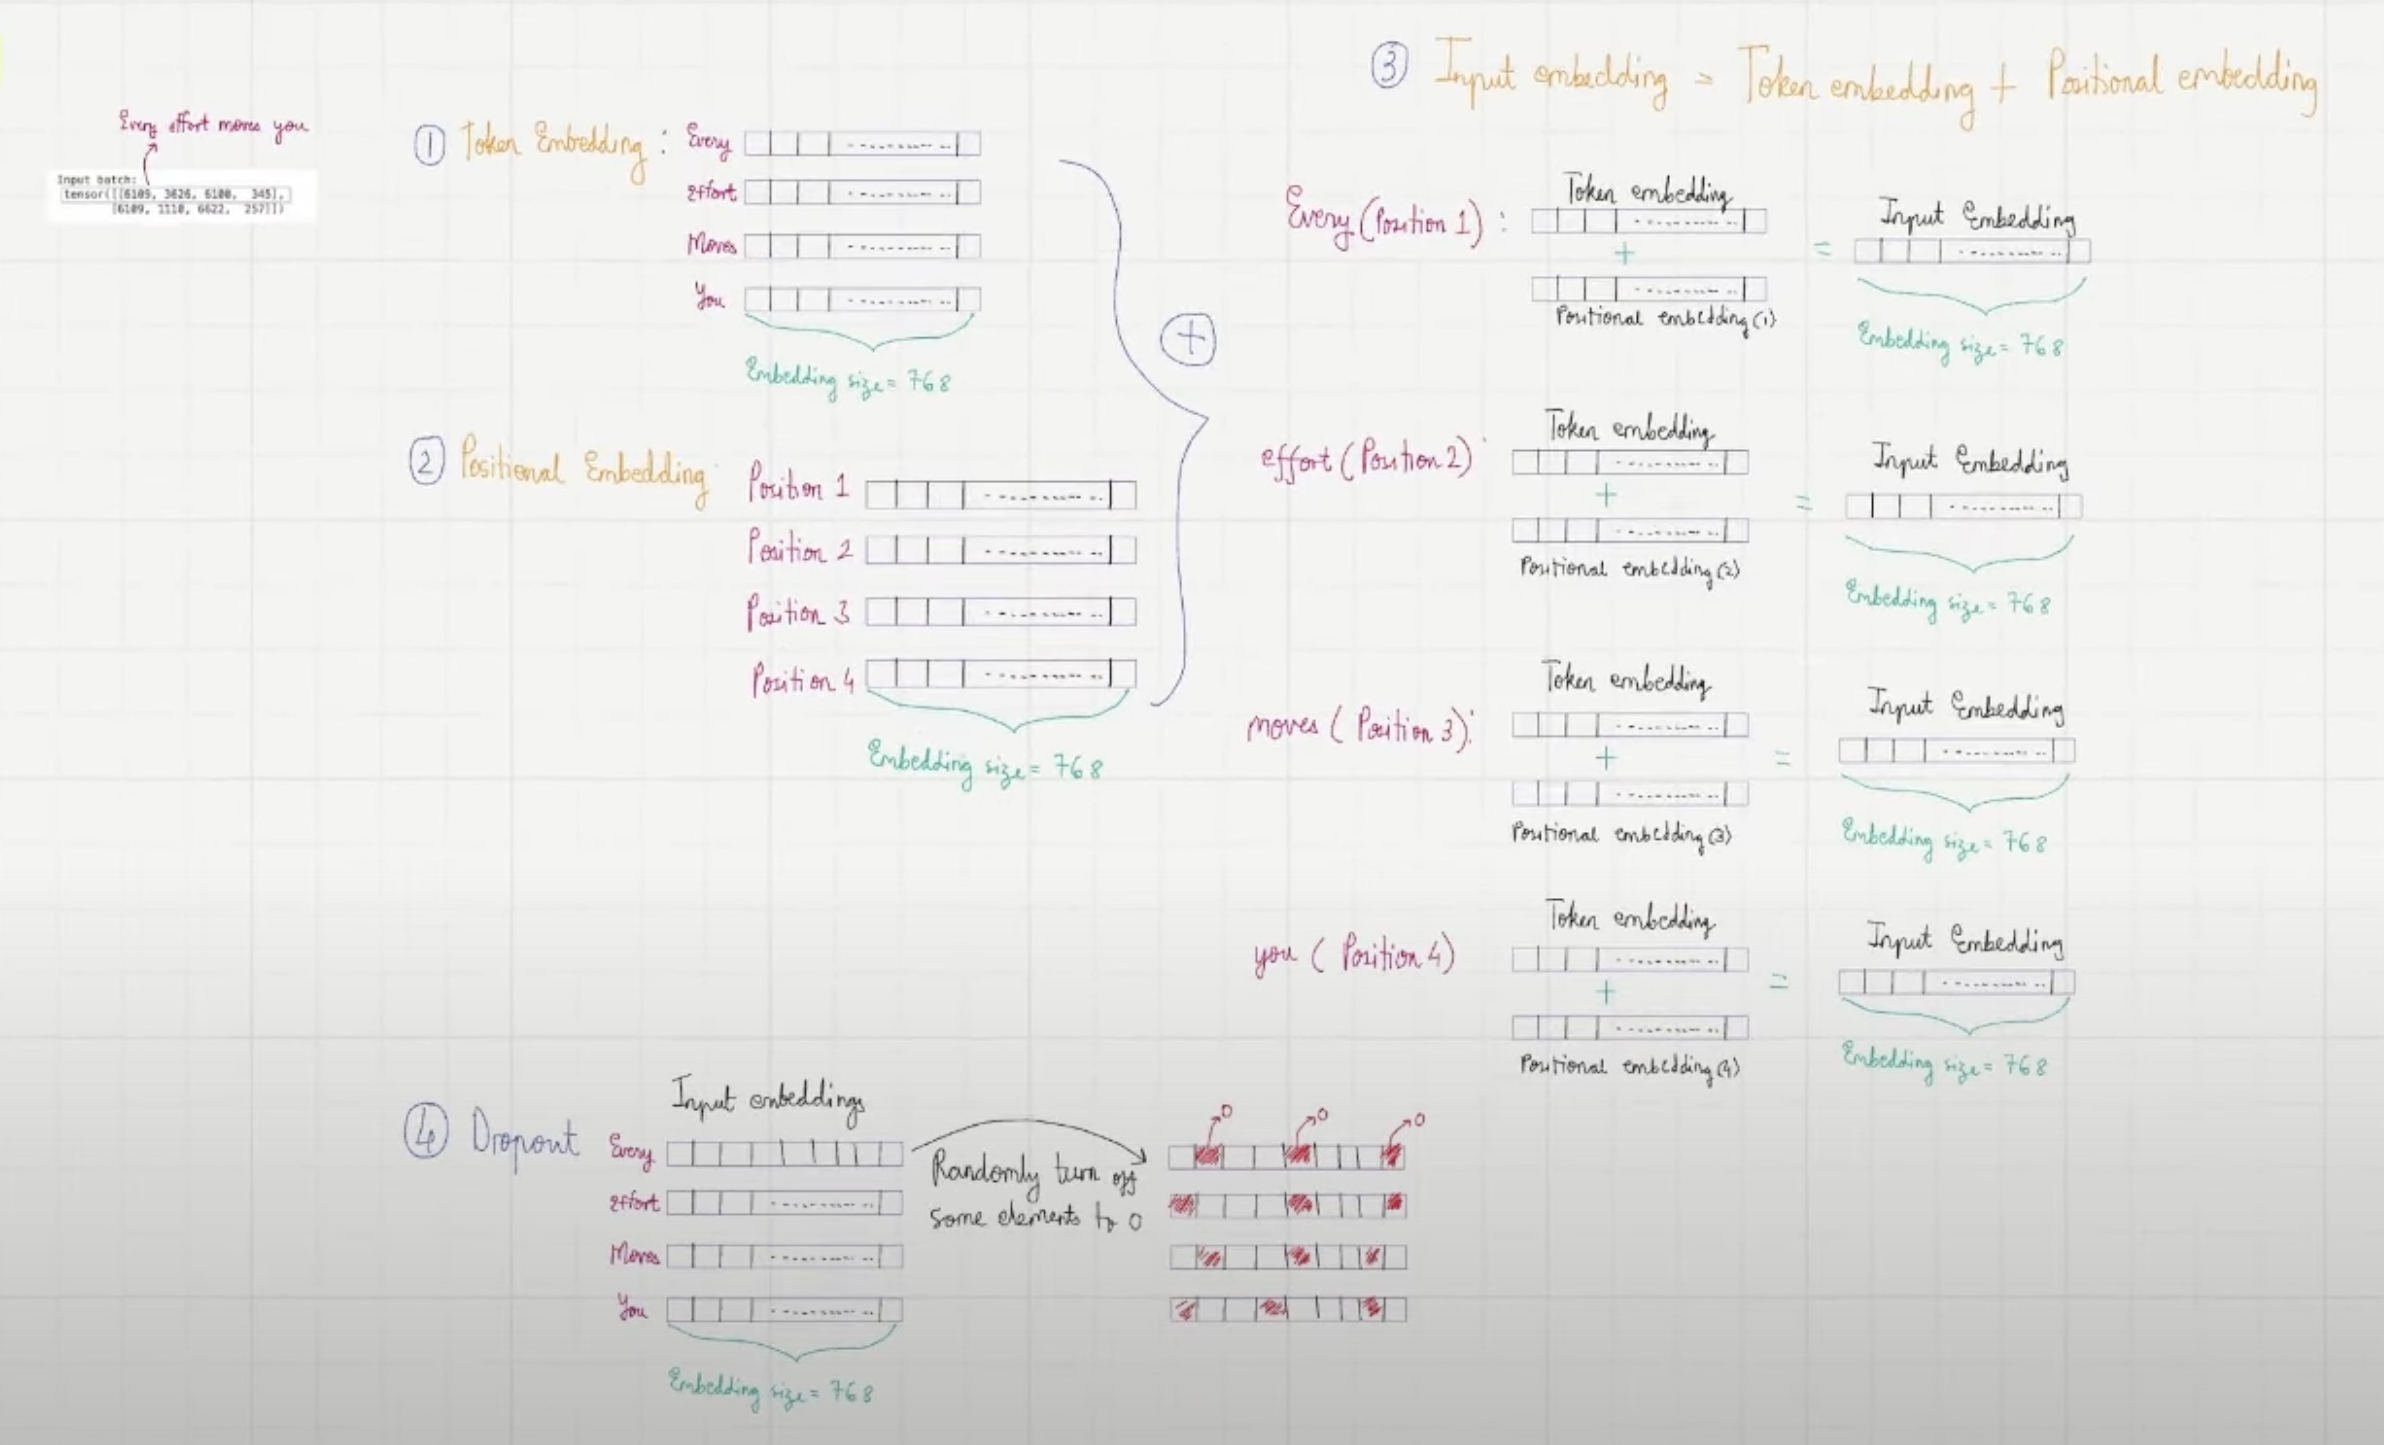 Every effort moves you
Input batch:
tensor([[6109, 3626, 6100, 345],
[6109, 1110, 6622, 257]])
① Token Embedding :
Every
effort
Moves
You
Embedding size = 768
② Positional Embedding
Position 1
Position 2
Position 3
Position 4
Embedding size = 768
+
③ Input embedding = Token embedding + Positional embedding
Every (Position 1) :
Token embedding
+
Positional embedding (1)
=
Input Embedding
Embedding size = 768
effort (Position 2) :
Token embedding
+
Positional embedding (2)
=
Input Embedding
Embedding size = 768
moves (Position 3) :
Token embedding
+
Positional embedding (3)
=
Input Embedding
Embedding size = 768
you (Position 4)
Token embedding
+
Positional embedding (4)
=
Input Embedding
Embedding size = 768
④ Dropout
Input embeddings
Every
effort
Moves
You
Embedding size = 768
Randomly turn off
some elements to 0
0
0
0